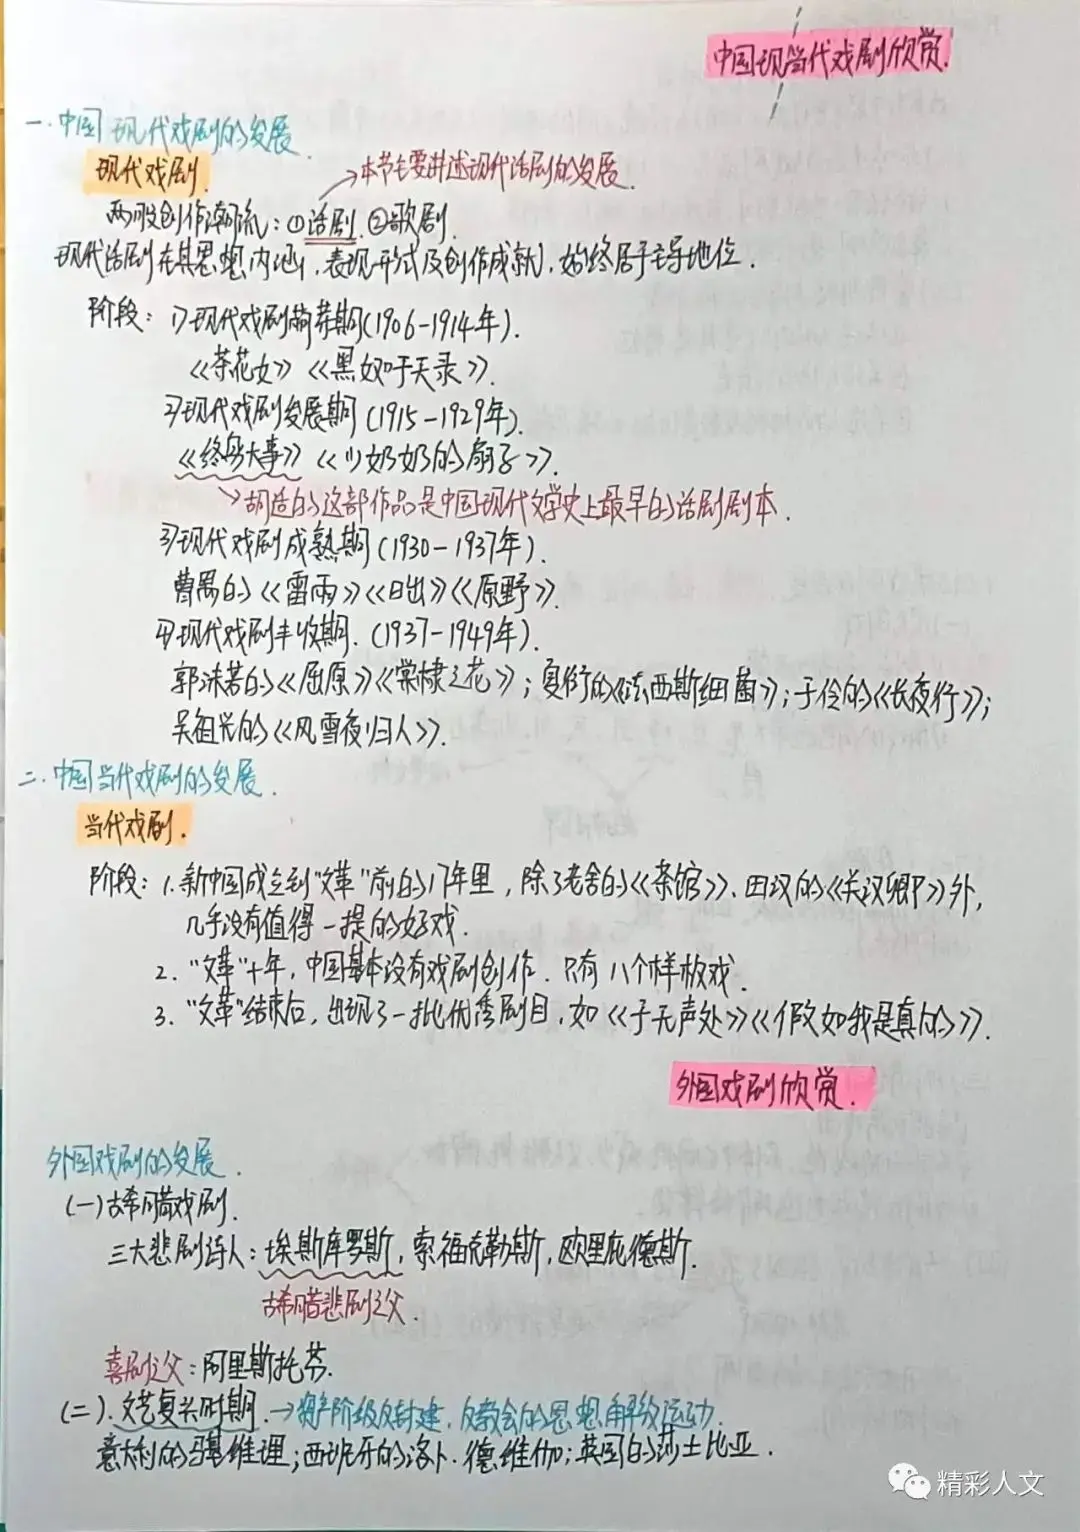 中国现当代戏剧欣赏.
一.中国现代戏剧的发展.
现代戏剧.
→本节主要讲述现代话剧的发展.
两股创作潮流:①话剧.②歌剧.
现代话剧在其思想内涵,表现形式及创作成就,始终居于主导地位.
阶段:1)现代戏剧萌芽期(1906-1914年).
《茶花女》《黑奴吁天录》.
2)现代戏剧发展期(1915-1929年).
《终身大事》《少奶奶的扇子》.
→胡适的这部作品是中国现代文学史上最早的话剧剧本.
3)现代戏剧成熟期(1930-1937年).
曹禺的《雷雨》《日出》《原野》.
4)现代戏剧丰收期.(1937-1949年).
郭沫若的《屈原》《棠棣之花》;夏衍的《法西斯细菌》;于伶的《长夜行》;
吴祖光的《风雪夜归人》.
二.中国当代戏剧的发展.
当代戏剧.
阶段:1.新中国成立到"文革"前的17年里,除了老舍的《茶馆》、田汉的《关汉卿》外,
几乎没有值得一提的好戏.
2."文革"十年,中国基本没有戏剧创作.只有八个样板戏.
3."文革"结束后,出现了一批优秀剧目,如《于无声处》《假如我是真的》.
外国戏剧欣赏.
外国戏剧的发展.
(一)古希腊戏剧.
三大悲剧诗人:埃斯库罗斯,索福克勒斯,欧里庇德斯.
古希腊悲剧之父.
喜剧之父:阿里斯托芬.
(二).文艺复兴时期.→资产阶级反封建.反教会的思想解放运动.
意大利的马基维理;西班牙的洛卜.德维伽;英国的莎士比亚.
精彩人文